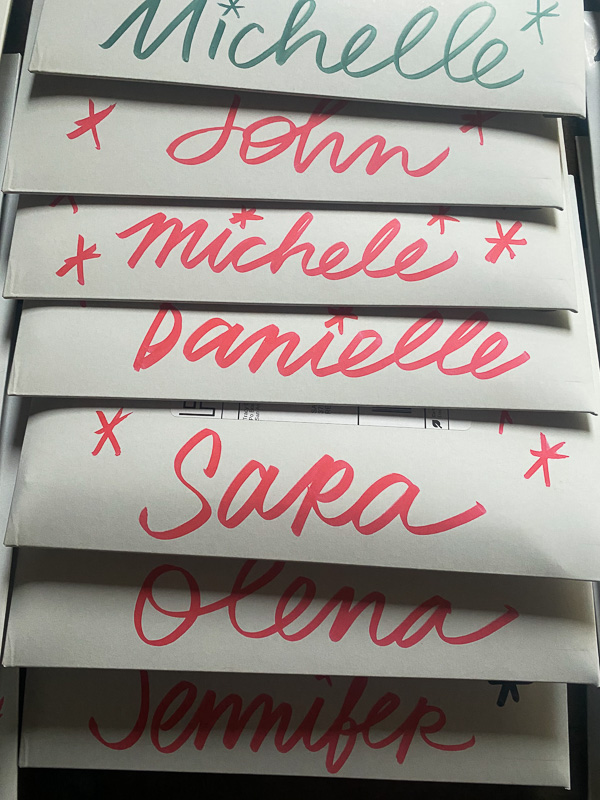 Michelle
John
michele
Danielle
Sara
Olena
Jennifer